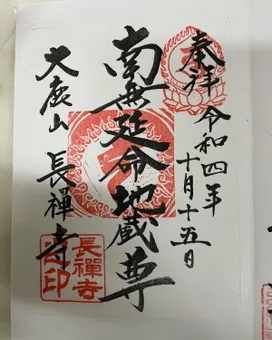 奉拝
令和四年
十月十五日
南無延命地蔵尊
大鹿山
長禪寺
長禪寺